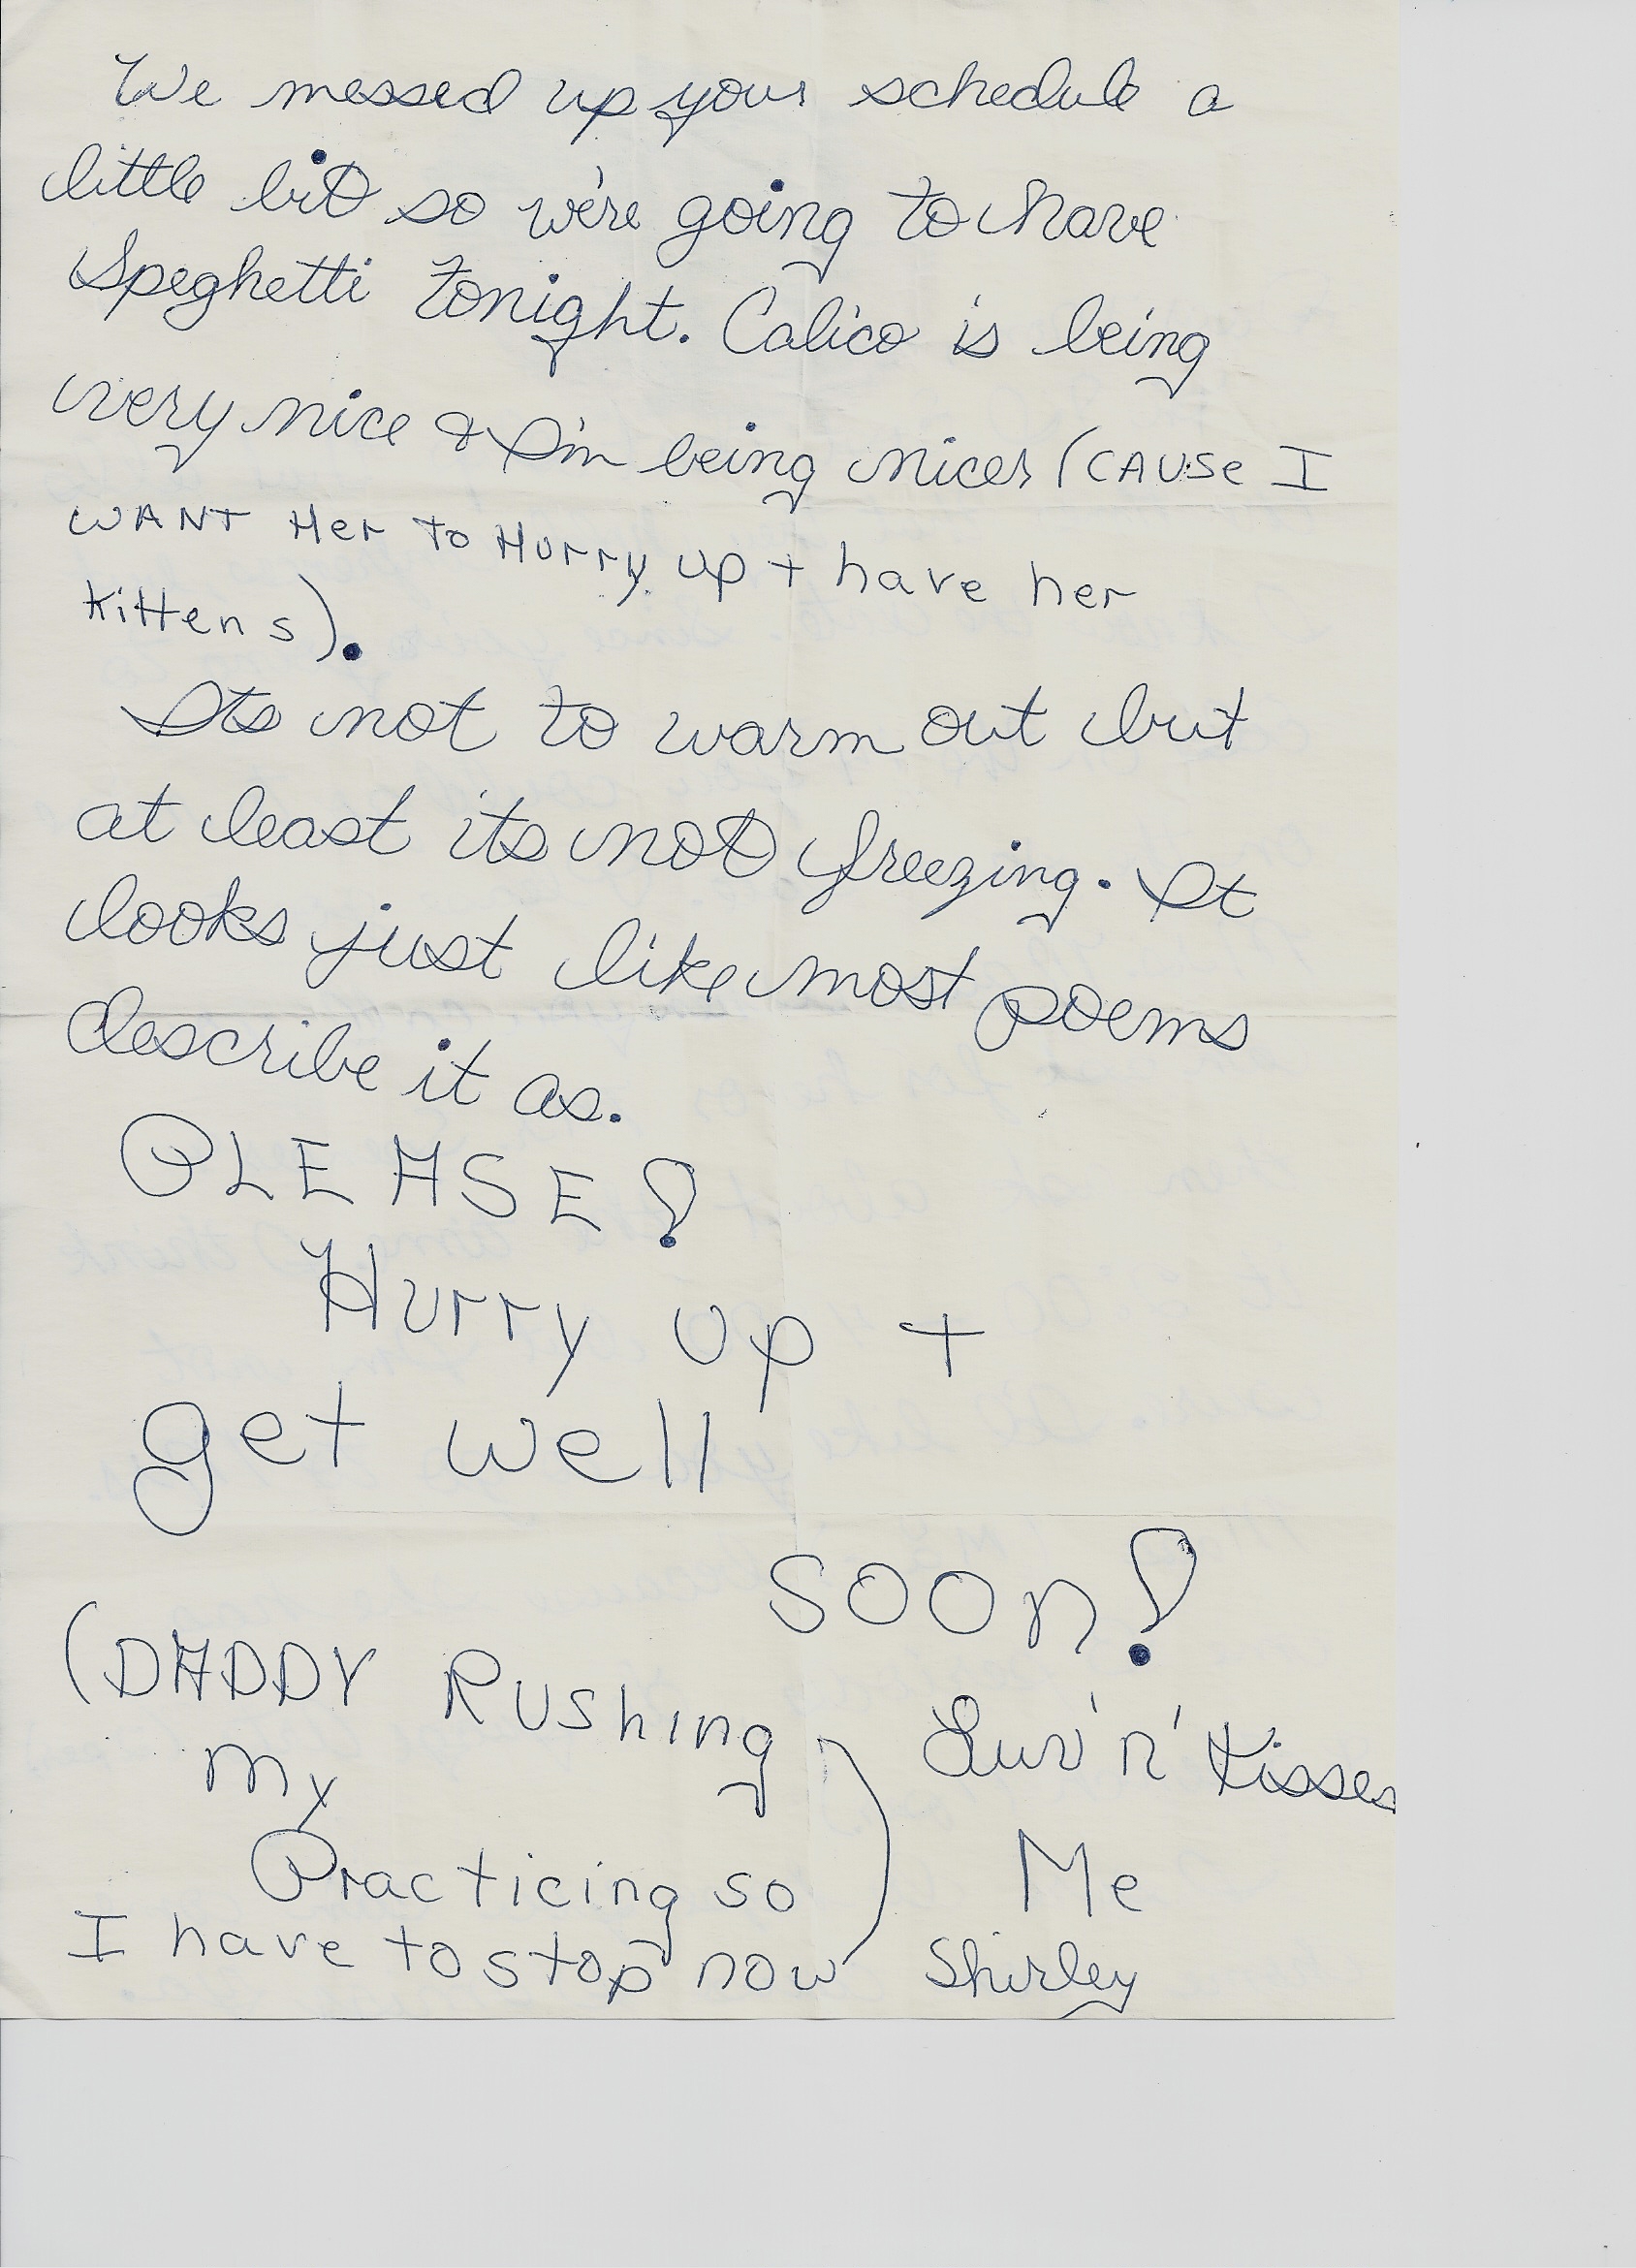 We messed up your schedule a
little bit so we're going to have
Speghetti tonight. Calico is being
very nice & I'm being nicer (CAUSe I
WANT Her to Hurry up + have her
kittens).
Its not to warm out but
at least its not freezing. It
looks just like most poems
describe it as.
PLEASE!
Hurry up +
get well
soon!
(DADDY Rushing
my
Practicing so
I have to stop now)
Luv 'n' Kisses
Me
Shirley